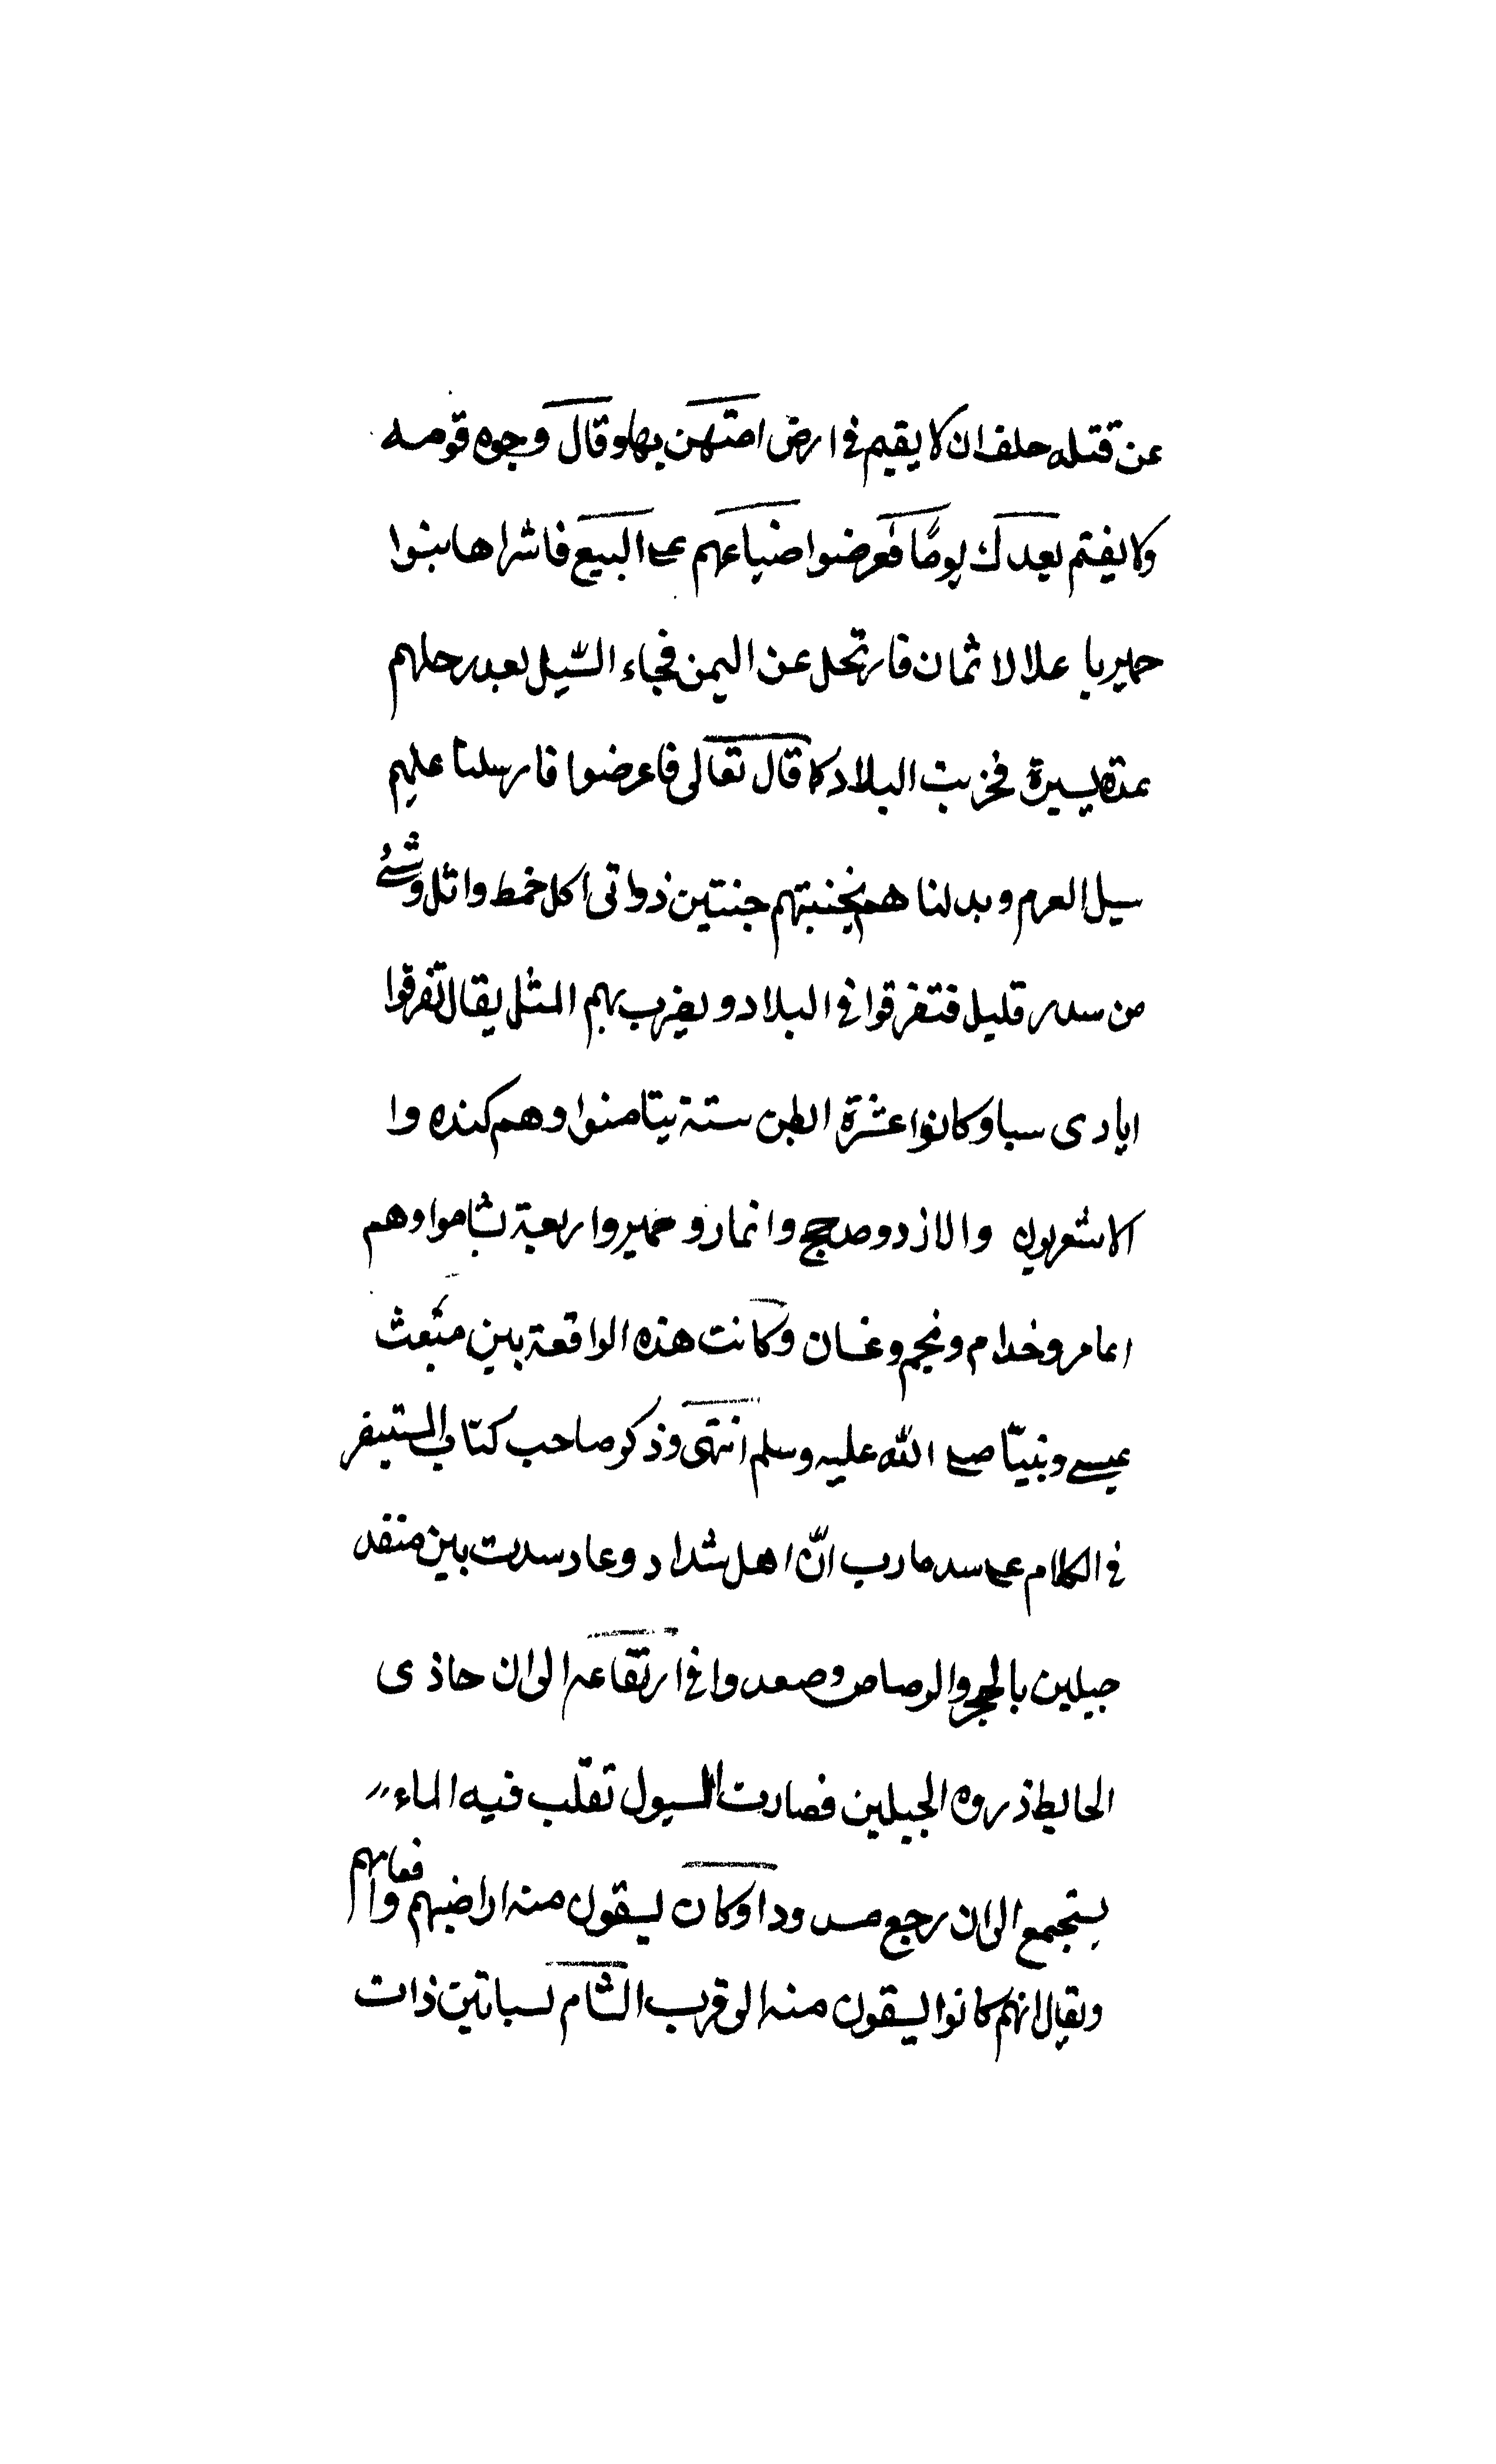 عن قتله حلف ان لا يقيم فى ارض امتهن بها وقال وجوه قومه
ولا يفتم بعدك يومًا فعرضوا ضياعهم على البيع فاشراها بنوا
حمير با علا الاثمان فارتحل عن اليمن فجاء السّيل بعد رحلهم
بمدة يسيرة فخربت البلاد كما قال تعالى فاعرضوا فارسلنا عليهم
سيل العرم وبدلناهم بجنبتهم جنتين ذواتى اكل خمط واثل وشئ
من سدر قليل فتفرقوا فى البلاد ويضرب بهم المثل يقال تفرقوا
ايادى سبا وكانوا عشرة ابطن ستة يتامنوا وهم كنده وا
لاشعريون والازد ومدحج وانمار وحمير واربعة تشاموا وهم
اعامر وخدام ونجم وغسان وكانت هذه الواقعة بين مبعث
عيسى ونبينّا صلى الله عليه وسلم انتهى وذكر صاحب كتاب المستبفر
فى الكلام على سد مارب انّ اهل شداد وعاد سدت بين منقد
جبلين بالحجر والرصاص وصعدوا فى ارتقاعه الى ان حاذى
الحايط ذروه الجبلين فصارت السيول تقلب فيه الماء
يستجمع الى ان رجع مسدودا وكان يسقون منه اراضيهم وانعامهم
ويقال انهم كانوا يسقون منه الى قرب الشام لسباتين ذات